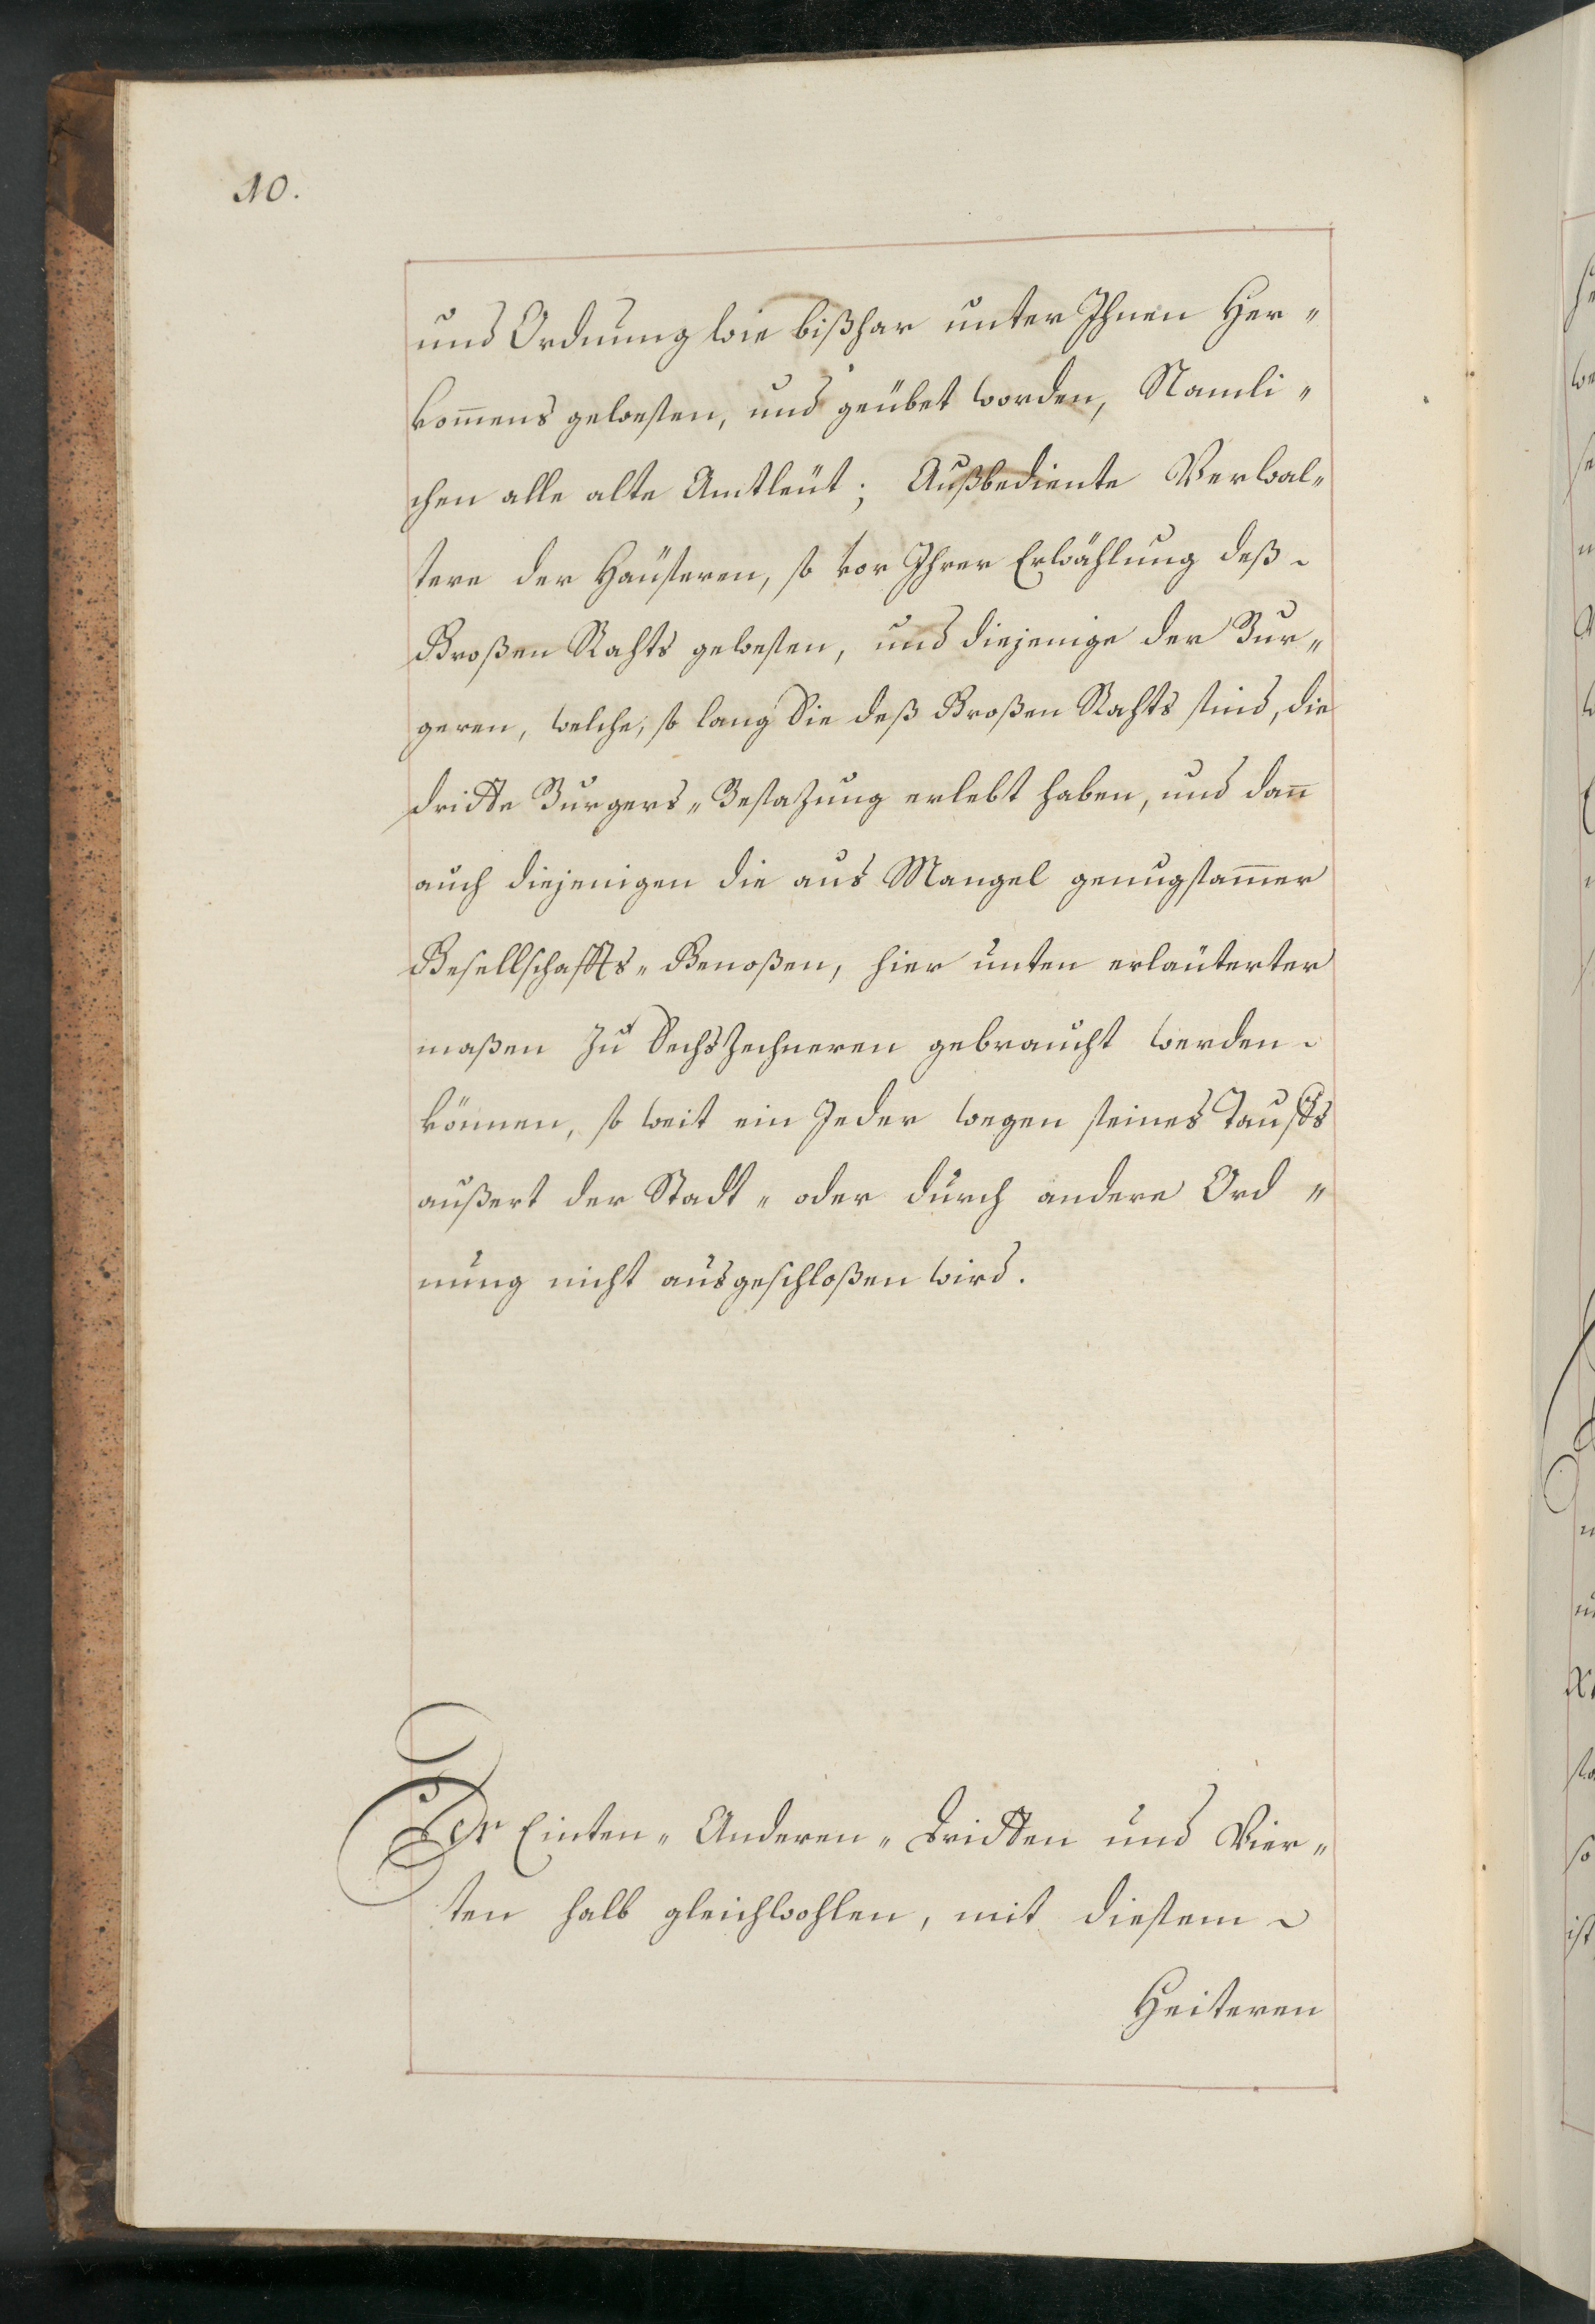 10.
und Ordnung wie bißhar unter Ihnen Her„
kom̄ens gewesen, und geübet worden, Namli„
chen alle alte Amtleüt; Außbediente Verwal„
tere der Häuseren, so vor Ihrer Erwählung deß
Großen Rahts gewesen, und diejenige der Bur„
geren, welche, so lang Sie deß Großen Rahts sind, die
dritte Burgers„Besazung erlebt haben, und dan̄
auch diejenigen die aus Mangel genugsam̄er
Gesellschaffts„Genoßen, hier unten erläuterter
maßen zu Sechszechneren gebraucht werden
können, so weit ein Jeder wegen seines Tauffs
außert der Stadt„ oder durch andere Ord„
nung nicht ausgeschloßen wird.
Der Einten„ Anderen„ Dritten und Vier„
ten halb gleichwohlen, mit diesem
Heiteren